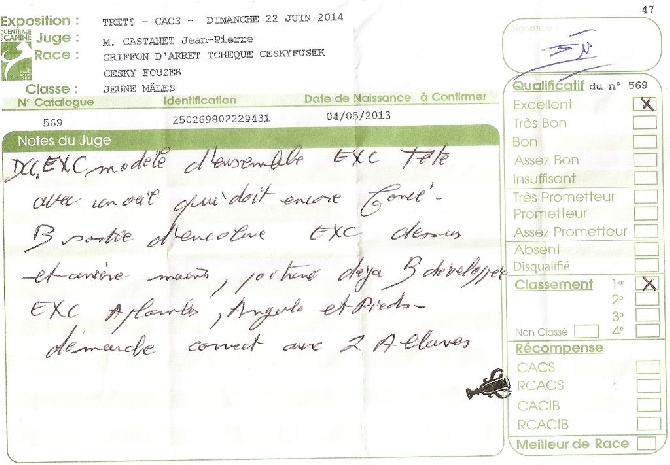 47
Exposition : TRETS - CACS - DIMANCHE 22 JUIN 2014
Juge : M. CASTANET Jean-Pierre
Race : GRIFFON D'ARRET TCHEQUE CESKYFUSEK
CESKY FOUZEK
Classe : JEUNE MÂLES
N° Catalogue Identification Date de Naissance à Confirmer
569 250269802229431 04/05/2013
Notes du Juge
EXC modèle d'ensemble EXC Tête
avec un oeil qui doit encore Foncé-
B sortie d'encolure EXC dessus
et arrière mains, déjà B développé
EXC Aplombs, Anguls et Pieds-
démarche correct aux 2 Allures
Signature :
Qualificatif du n° 569
Excellent X
Très Bon
Bon
Assez Bon
Insuffisant
Très Prometteur
Prometteur
Assez Prometteur
Absent
Disqualifié
Classement 1er X
2e
3e
Non Classé 4e
Récompense
CACS
RCACS
CACIB
RCACIB
Meilleur de Race